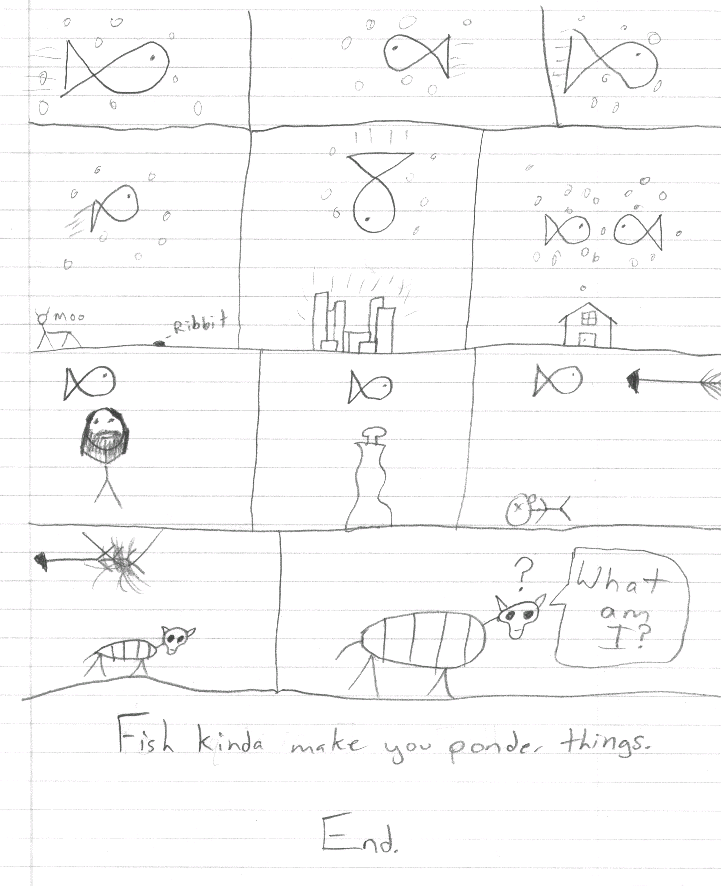 moo
Ribbit
?
What
am
I?
Fish kinda make you ponder things.
End.